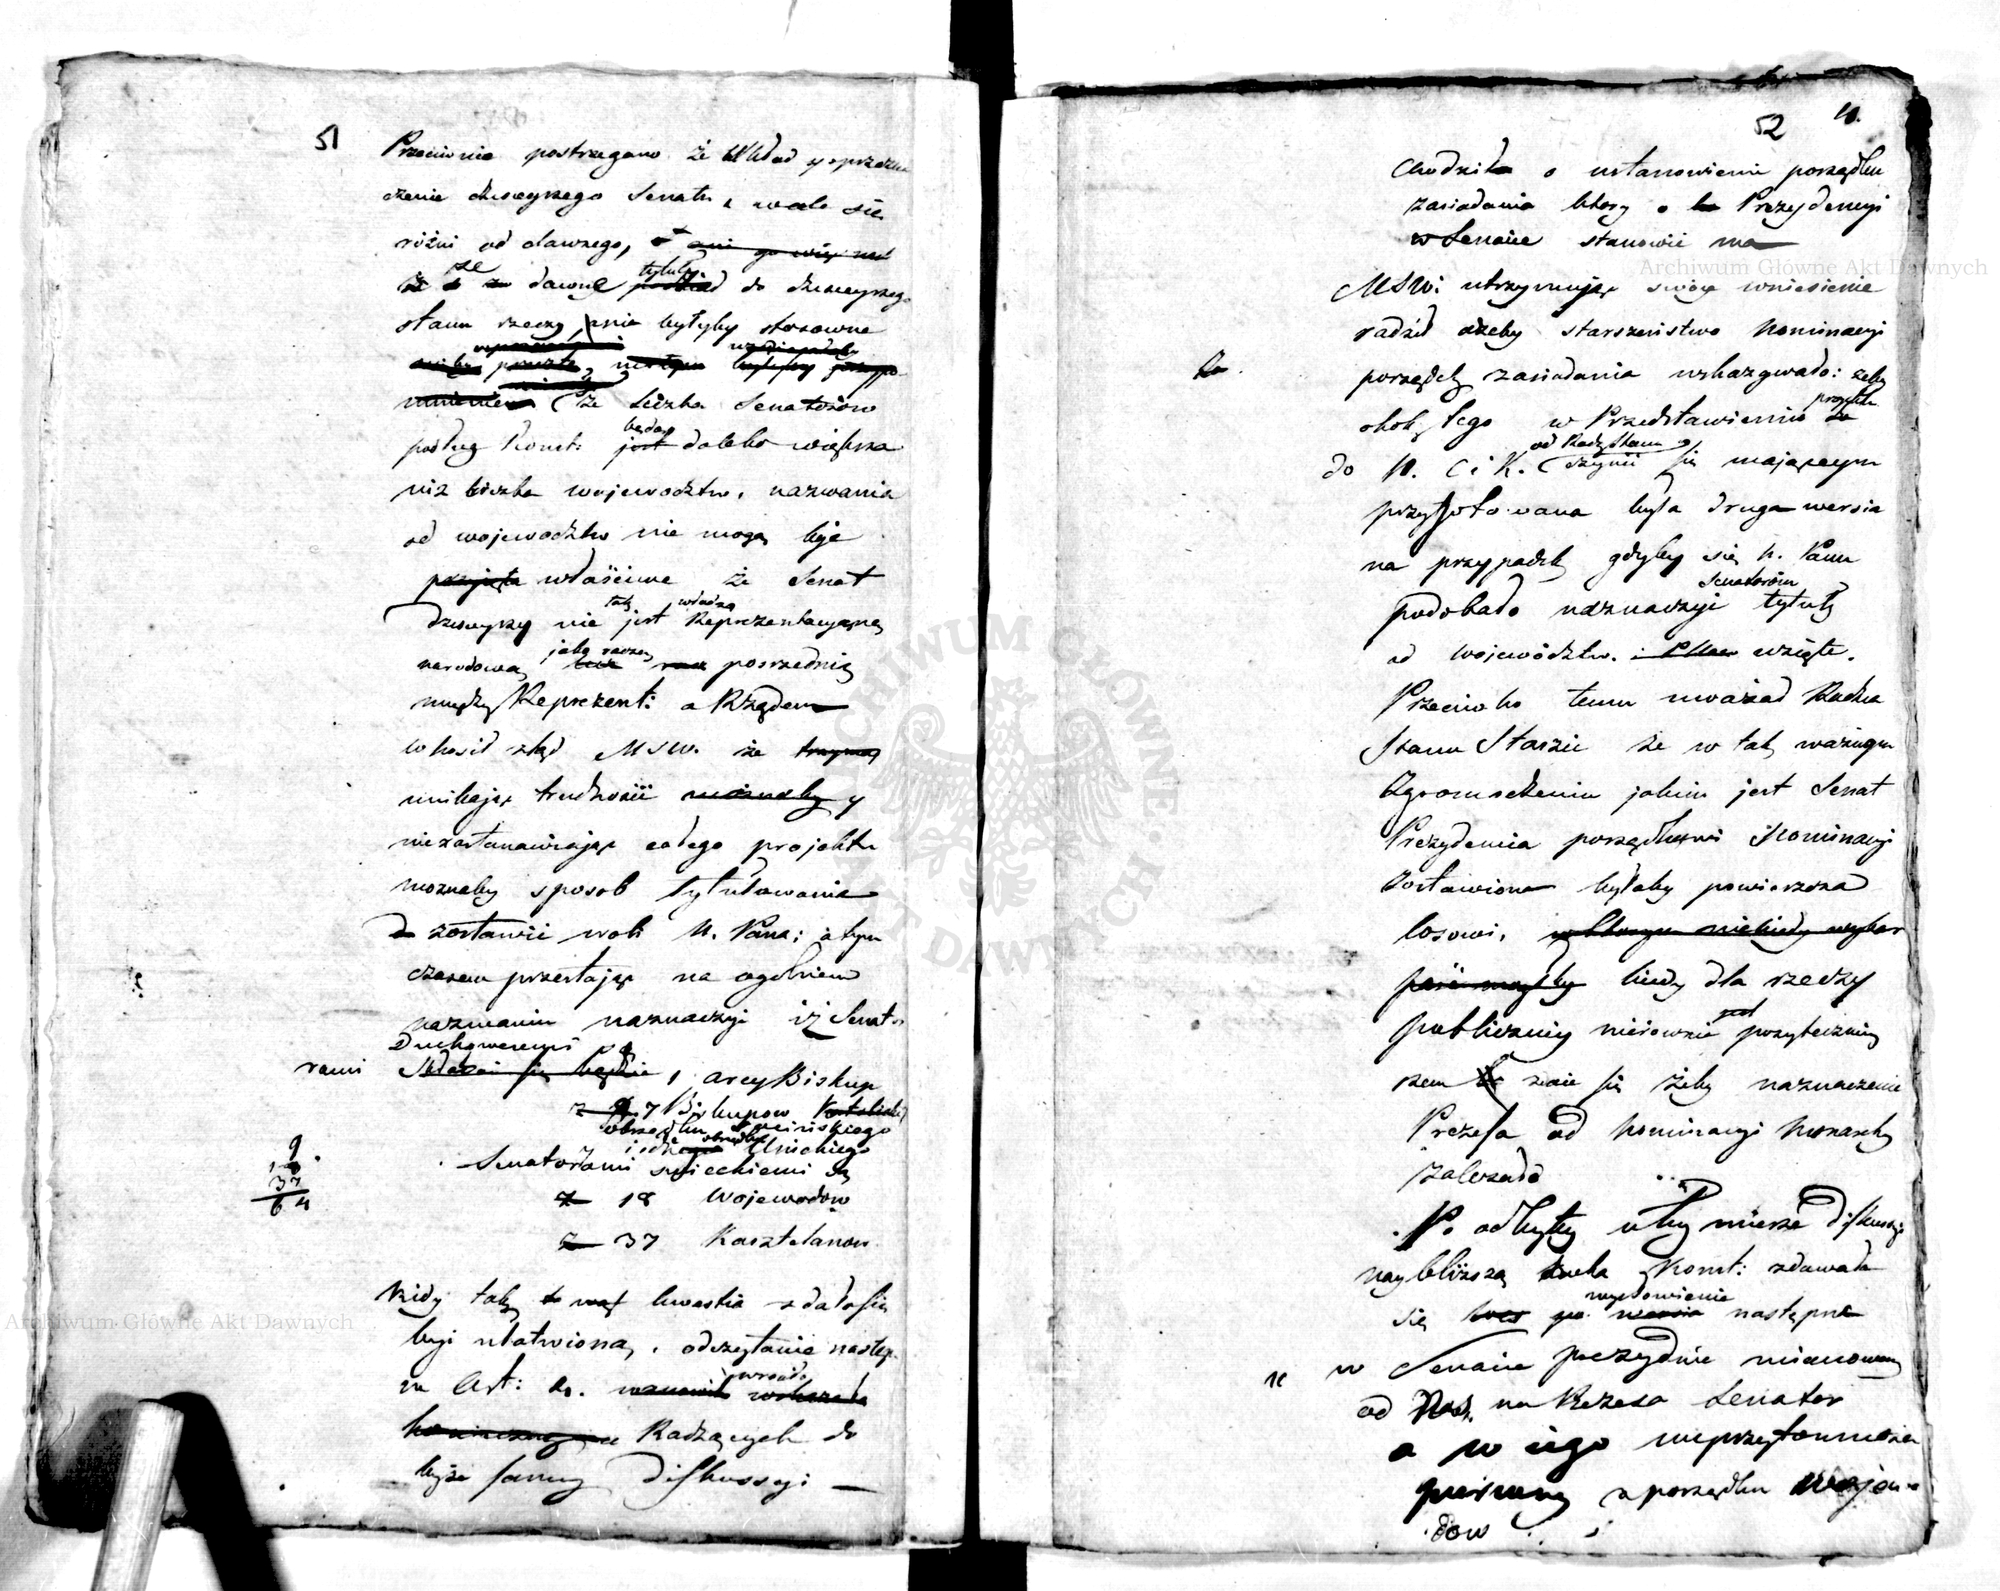 51
Przeciwnie postrzegano że Układ y oprzezna
czenie dzisieyszego Senatu, wcale się
różni od dawnego,
że dawne tytuły do dzisieyszego
stanu rzeczy, nie byłyby stosowne
że liczba Senatorów
podług Konst: będąc daleko większa
niż liczba wojewodztw, nazwania
od wojewodztw nie mogą być
właściwe że Senat
dzisieyszy nie jest tak władzą Reprezentacyjną
narodową, jako raczey posrzednią
między Reprezent: a Rządem
Wnosił ztąd MSW. że
unikając trudności y
niezastanawiając całego projektu
moznaby sposob tytułowania
zostawić woli N. Pana; a tym
czasem przestając na ogolnem
nazwaniu naznaczyć iż Senato
rami Duchownemi są
1 ArcyBiskup
7 Biskupow
obrządku Łacińskiego
i 1 obrządku Unickiego
Senatorami swieckiemi są
18 Wojewodow
37 Kasztelanow
9
18
37
64
Kiedy tak kwestia zdała się
być ułatwioną, odczytanie następ
u Art: wzniosło
Radzących do
teyże samey diskussyi
52
chodziło o ustanowienie porządku
zasiadania ktory o Prezydencyi
w Senacie stanowić ma
MSW: utrzymując swoje wniesienie
radził ażeby starszeństwo Nominacyi
porządek zasiadania wskazywało: żeby
obok tego w Przedstawieniu przytem
do N. C i K. od Rady Stanu czynić się mającym
przygotowana była druga wersia
na przypadek gdyby się N. Panu
podobało naznaczyć Senatorom tytuły
od Wojewodztw. wzięte.
Przeciwko temu uważał Radca
Stanu Staszic że w tak ważnym
Zgromadzeniu jakim jest Senat
Prezydencia porządkowi Nominacyi
zostawiona byłaby powierzona
losowi, kiedy dla rzeczy
publiczney nierownie jest pożyteczniey
szem zdaie się żeby naznaczenie
Prezesa od Nominacyi Monarchy
zależało
Po odbytey w tey mierze diskussyi
naybliższą Konst: zdawało
się wysłowienie następne
w Senacie prezyduie mianowany
od Nas. na Prezesa Senator
a w iego nieprzytomności
pierwszy z porządku Wojewo
dow
Archiwum Główne Akt Dawnych
Archiwum Główne Akt Dawnych
ARCHIWUM GŁÓWNE AKT DAWNYCH